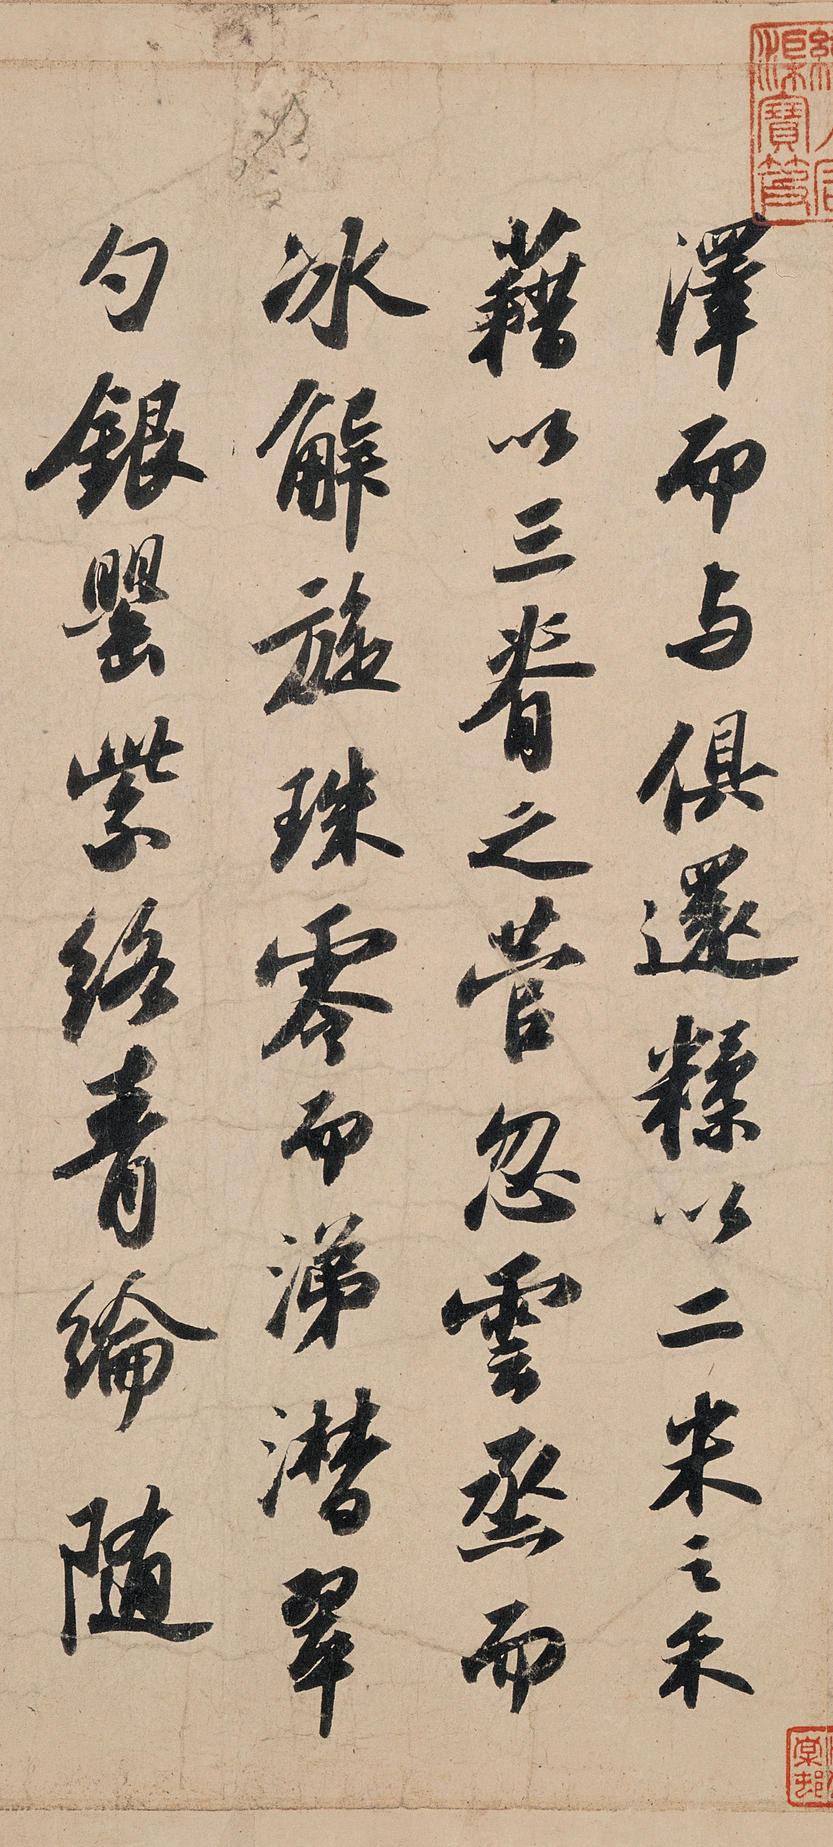 澤而与俱還糅以二米之禾
藉以三脊之菅忽雲烝而
冰解旋珠零而涕潸翠
勺銀罌紫絡青綸隨
渠寶笈
棠邨